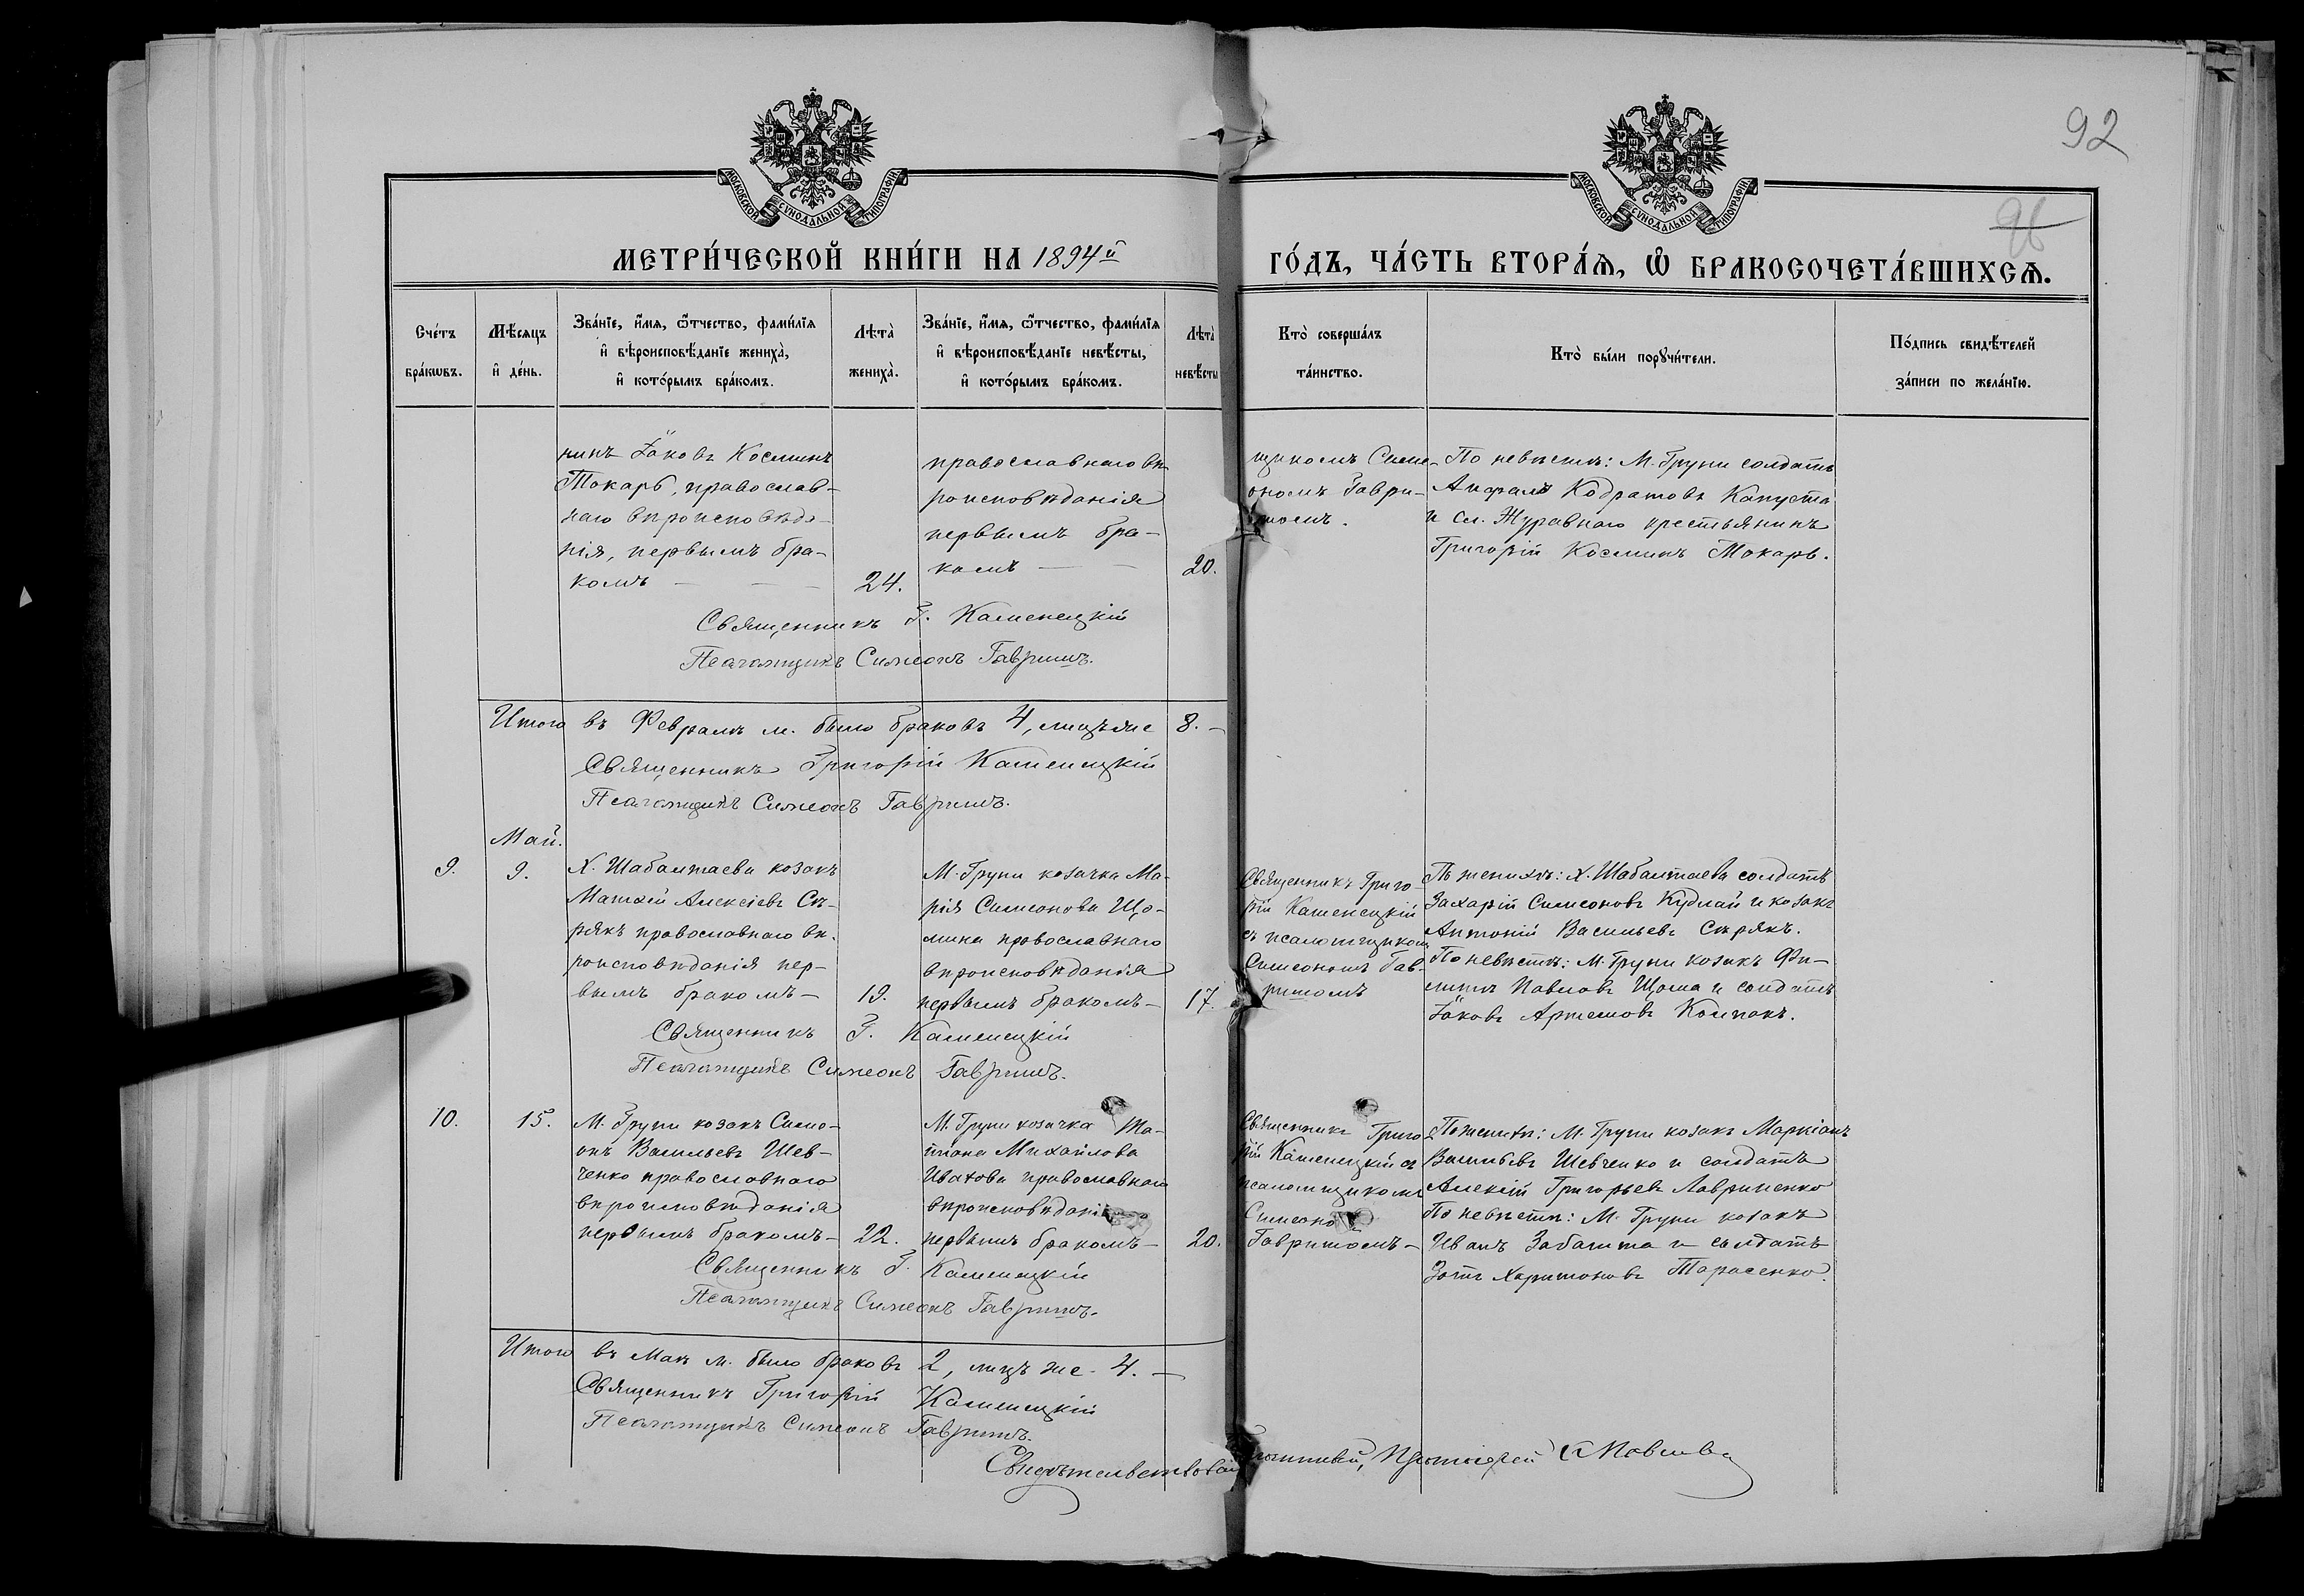 92
96
МОСКОВСКОЙ СѴНОДАЛЬНОЙ ТИПОГРАФІИ
МОСКОВСКОЙ СѴНОДАЛЬНОЙ ТИПОГРАФІИ
МЕТРИ́ЧЕСКОЙ КНИ́ГИ НА 1894й
ГО́ДЪ, ЧА́СТЬ ВТОРА́Ѧ, Ѽ БРАКОСОЧЕТА́ВШИХСѦ.
Сче́тъ
бра́кѡвъ.
Мѣ́сѧцъ
и҆ де́нь.
Зва́нїе, и҆́мѧ, ѻ҆́тчество, фамилїѧ
и҆ вѣроисповѣ́данїе жениха̀,
и҆ кото́рымъ бра́комъ.
Лѣта̀
жениха̀.
Зва́нїе, и҆́мѧ, ѻ҆́тчество, фамилїѧ
и҆ вѣроисповѣ́данїе невѣ́сты,
и҆ кото́рымъ бра́комъ.
Лѣта̀
невѣ́сты
Кто̀ соверша́лъ
та́инство.
Кто̀ бы́ли порꙋчи́тели.
По́дпись свидѣ́телей
за́писи по жела́нїю.
нинъ Іаковъ Косминъ
Токарь, православ-
наго вѣроисповѣда-
нія, первымъ бра-
комъ — —
24.
православнаго вѣ-
роисповѣданія
первымъ бра-
комъ — —
20.
щикомъ Симе-
ономъ Гаври-
шомъ.
По невѣстѣ: М. Груни солдатъ
Кодратовъ Капуста
и сл. Журавнаго крестьянинъ
Григорій Косминъ Токарь.
Священникъ Г. Каменецкій
Псаломщикъ Симеонъ Гавришъ.
Итого въ Февралѣ м. было браковъ 4, лицъ же 8. —
Священникъ Григорій Каменецкій
Псаломщикъ Симеонъ Гавришъ.
Май.
9.
9.
Х. Шабалтаева козакъ
Матѳей Алексіевъ Сѣ-
рякъ православнаго вѣ-
роисповѣданія пер-
вымъ бракомъ —
19.
М. Груни козачка Ма-
рія Симеонова Що-
мина православнаго
вѣроисповѣданія
первымъ бракомъ —
17.
Священникъ Григо-
рій Каменецкій
съ псаломщикомъ
Симеономъ Гав-
ришомъ
По женихѣ: Х. Шабалтаева солдатъ
Захарій Симеоновъ Кудлай и козакъ
Антоній Васильевъ Сѣрякъ.
По невѣстѣ: М. Груни козакъ Фи-
липъ Павловъ Щома и солдатъ
Іаковъ Артемовъ Колпакъ.
Священникъ Г. Каменецкій
Псаломщикъ Симеонъ Гавришъ.
10.
15.
М. Груни козакъ Симе-
онъ Васильевъ Шев-
ченко православнаго
вѣроисповѣданія
первымъ бракомъ —
22.
М. Груни козачка Та-
тіана Михайлова
Ивахова православнаго
вѣроисповѣдані
первымъ бракомъ —
20.
Священникъ Григо
рій Каменецкій съ
псаломщикомъ
Симеоно
Гавришомъ —
По женихѣ: М. Груни козакъ Маркіанъ
Васильевъ Шевченко и солдатъ
Алексій Григорьевъ Лавриненко
По невѣстѣ: М. Груни козакъ
Иванъ Забашта и солдатъ
Зотъ Харитоновъ Тарасенко.
Священникъ Г. Каменецкій
Псаломщикъ Симеонъ Гавришъ.
Итого въ Маѣ м. было браковъ 2, лицъ же 4. —
Священникъ Григорій Каменецкій
Псаломщикъ Симеонъ Гавришъ.
Свидѣтельствовалъ Протоіерей